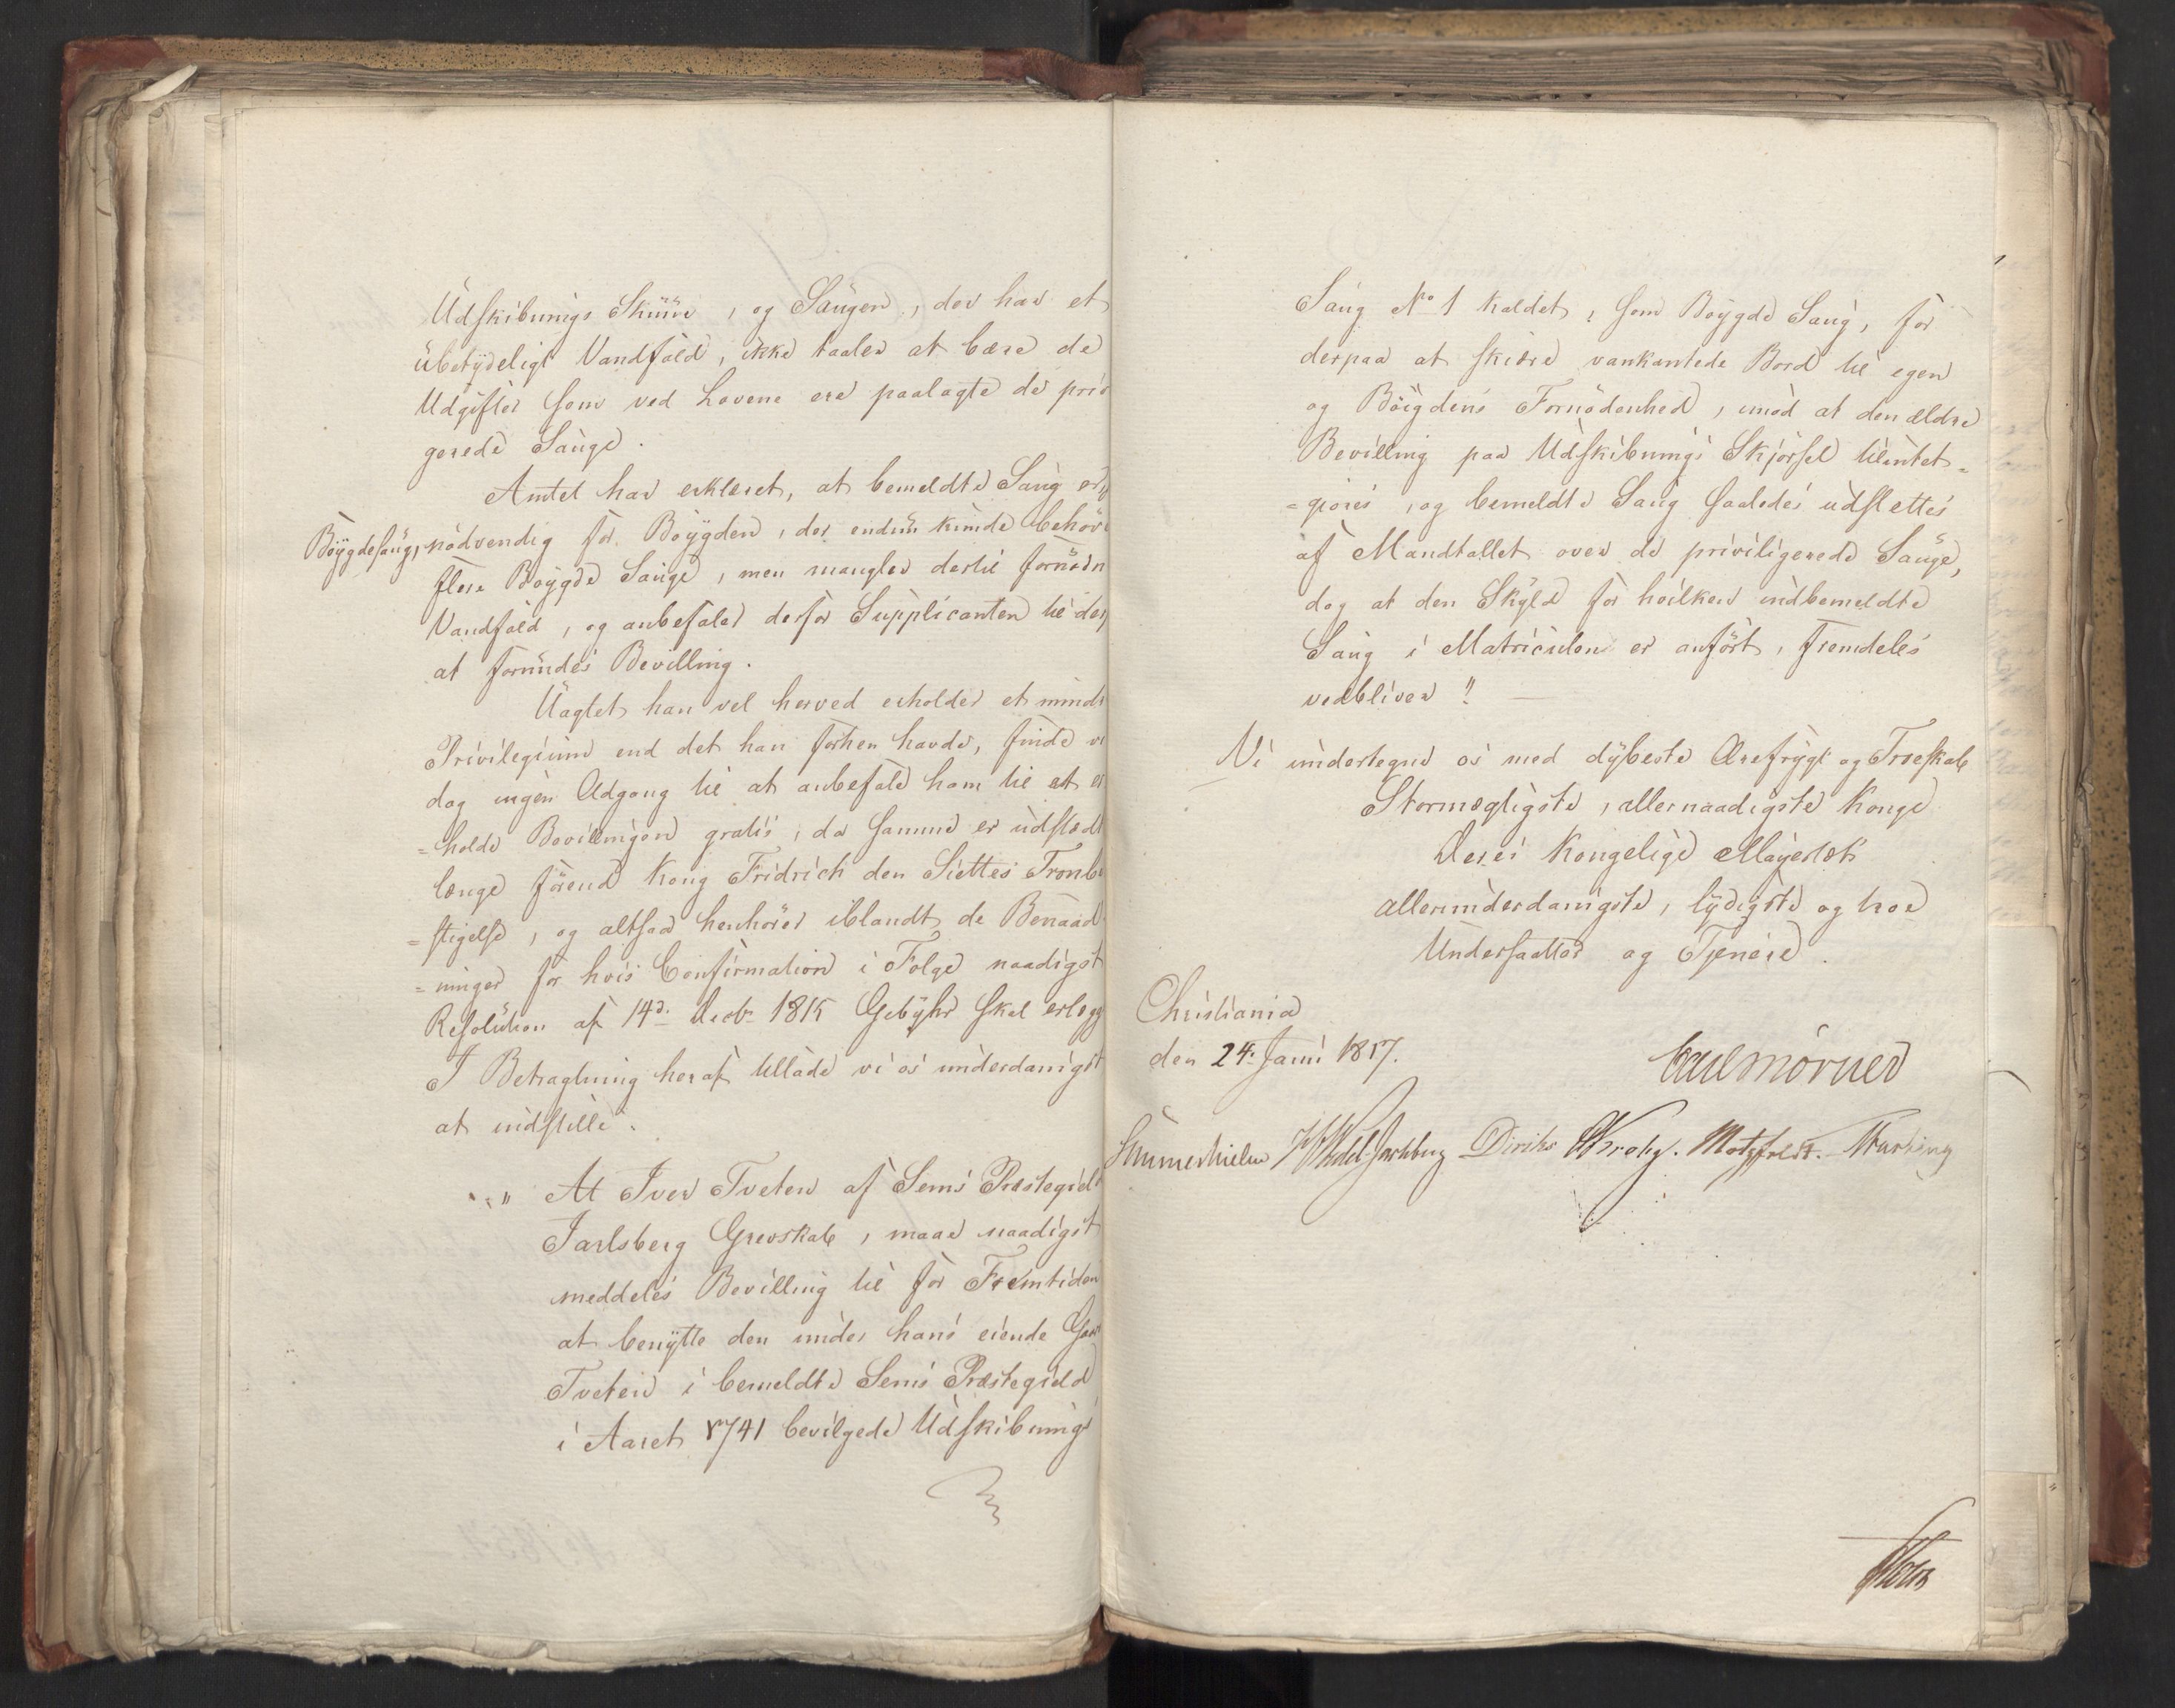 Udskibnings Skuur, og Saugen, der har et
übetÿdeligt Vandfald, ikke taaler at bære de
Udgifter som ved Lovene ere paalagte de priv
gerede Sauge.
Amtet har erklæret, at bemeldte Saug er,
Böÿgdesaug, nödvendig for Böÿgden, der endnu kunde behöv
flere Böÿgde Sauge, men mangler dertil fornödn
Vandfald, og anbefaler derfor Supplicanten til den
at forundes Bevilling.
Uagtet han vel herved erholder et mindr
Privilegium end det han forhen havde, finde vi
dog ingen Adgang til at anbefale ham til at er
=holde Bevillingen gratis, da samme er udstædt
længe förend Kong Fridrich den Siettes Tronbe
=stigelse, og altsaa henhörer iblandt de Benaad
=ninger for hvis Confirmation i Fölge naadigst
Resolution af 14d. Decbr 1815 Gebÿhr skal erlægg
I Betragtning heraf tillade vi os underdanigst
at indstille:
" At Iver Tveten af Sems Præstegield
Jarlsberg Grevskab, maae naadigst
meddeles Bevilling til for Fremtiden
at benÿtte den under hans eiende Gaar
Tveten i bemeldte Sems Præstegield
i Aaret 1741 bevilgede Udskibnings
Saug No 1 kaldet, som Böÿgde Saug, for
derpaa at skiære vankantede Bord til egen
og Böigdens Fornödenhed, imod at den ældre
Bevilling paa Udskibnings Skjörsel tilintet=
=giöres, og bemeldte Saug saaledes udslettes
af Mandtallet over de priviligerede Sauge,
dog at den Skÿld for hvilken indbemeldte
Saug i Matriculen er anfört, fremdeles
vedbliver "
Vi undertegne os med dÿbeste Ærefrÿgt og Troeskab
Stormægtigste, allernaadigste Konge
Deres Kongelige Majestæts
allerunderdanigste, lÿdigste og troe
Undersaatter og Tjenere.
Christiania
den 24. Juni 1817.
Carl Mörner
Sommerhielm Wedel-Jarlsberg Diriks Krohg. Motzfeldt.
Holm